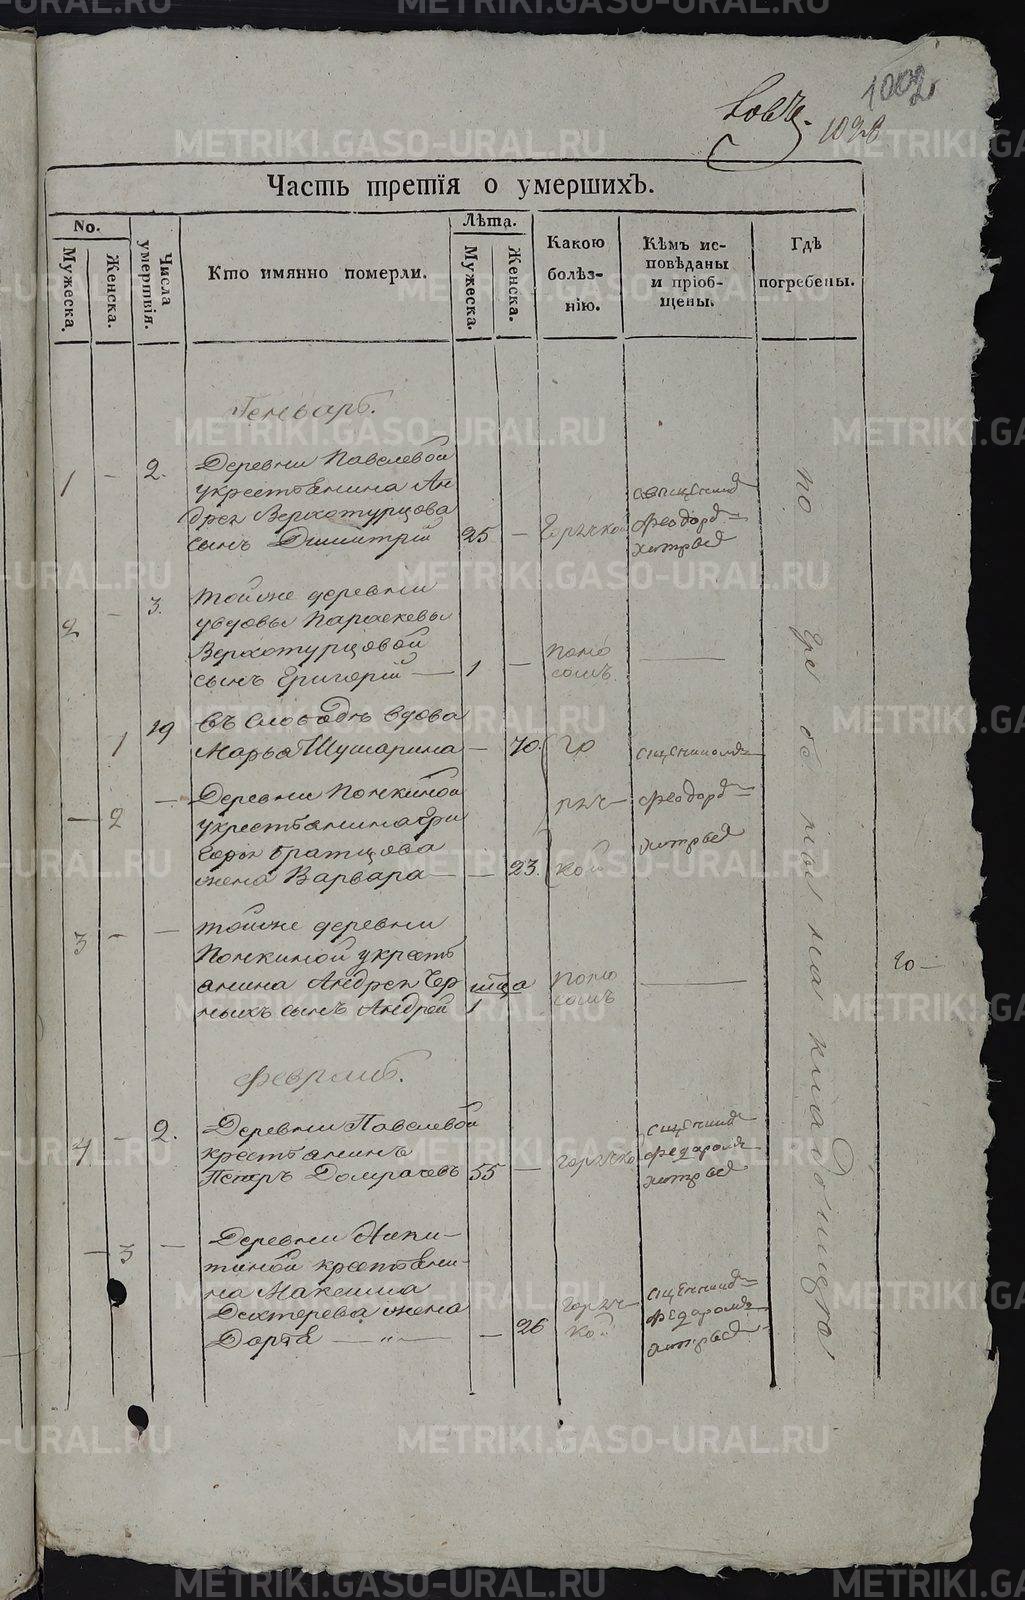 1002
1028
Часть третія о умершихъ.
No.
Мужеска.
Женска.
Числа умертвія.
Кто имянно померли.
Лѣта.
Мужеска.
Женска.
Какою болѣз-
нію.
Кѣмъ ис-
повѣданы
и пріоб-
щены.
Гдѣ
погребены.
Генварь.
1 - 2. Деревни Павелевой
укрестьянина Ан
дрея Верхотурцова
сынъ Димитрій 25 - Горячкой
священник
Феодор
Хитрых
2 - 3. тойже деревни
увдовы Параскевы
Верхотурцовой
сынъ Григорій — 1 - Поно
сомъ —
1 19 въ Слободѣ вдова
Марья Шушарина - 70. Го
- 2 - Деревни Понкиной
укрестьянина Гри
горья Братцова
жена Варвара — 23. ряч
кой
сщенникомъ
Феодор
Хитрых
3 - - тойже деревни
Понкиной укресть
янина Андрея Чер
ныхъ сынъ Андрей 1 мца
Поно
сомъ —
20 -
Февраль.
4 - 2. Деревни Павелевой
крестьянинъ
Петръ Домрачевъ 55 - Горячко
сщенник
Федоромъ
Хитрых
- 3 - Деревни Ники-
тиной крестьяни-
на Максима
Дехтерева жена
Дарья — „ — - 26 Горяч
кой
сщенник
Федоромъ
Хитрых
на кладбище
METRIKI.GASO-URAL.RU